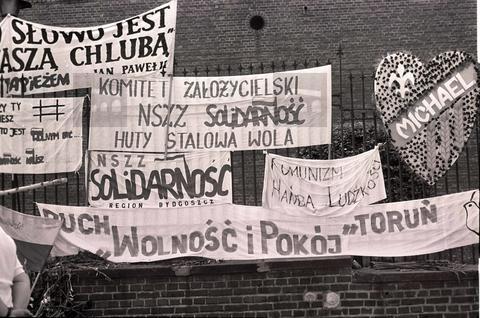 SŁOWO JEST
ASZA CHLUBĄ
JAN PAWEŁ II
PAPIEŻEM
TO JEST
KOMITET ZAŁOŻYCIELSKI
NSZZ SOLIDARNOŚĆ
HUTY STALOWA WOLA
NSZZ
SOLIDARNOŚĆ
REGION BYDGOSZCZ
KOMUNIZM
HAŃBĄ LUDZKOŚCI
RUCH „WOLNOŚĆ i POKÓJ" TORUŃ
MICHAEL